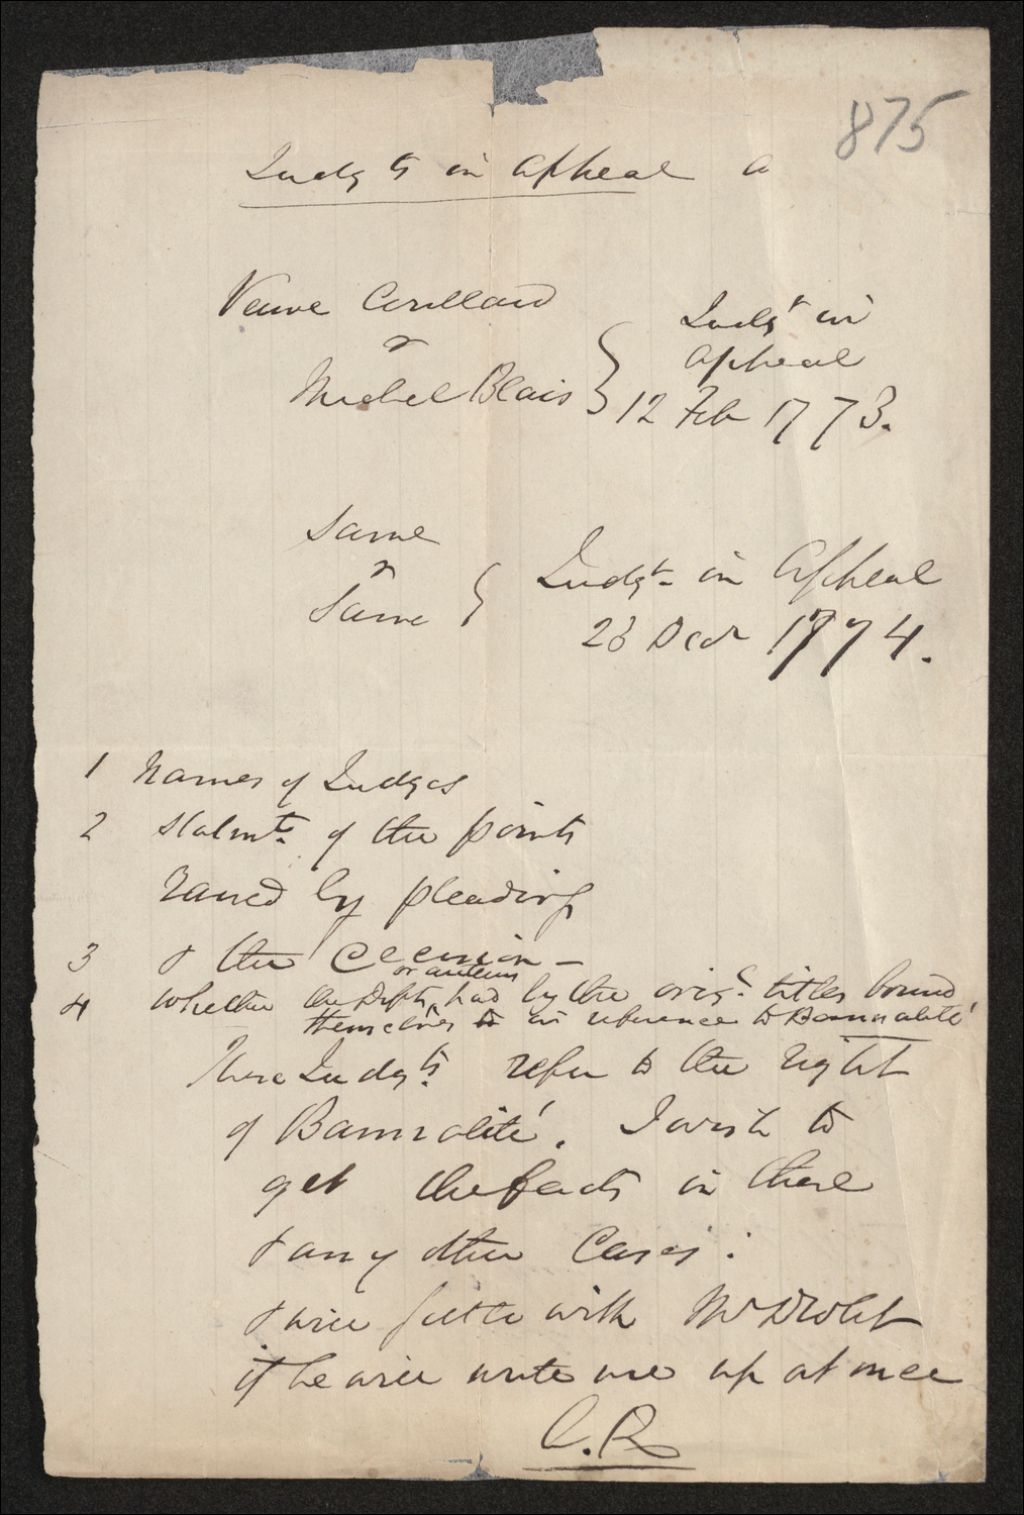 875
Judgts in appeal a
Veuve Couillard
v
Michel Blais } Judgt in
appeal
12 Feb 1773.
Same
v
Same } Judgt in Appeal
23 Decr 1774.
1 Names of Judges
2 Statmts of the points
raised by pleadings
3 & the
4 whether the Defts or auteurs had by the origl titles bound
themselves in reference to Bannalité
These Judgts refer to the right
of Bannalité. I wish to
get the facts in these
& any other Cases:
& will settle with Mr Drolet
if he will write me up at once
C.R